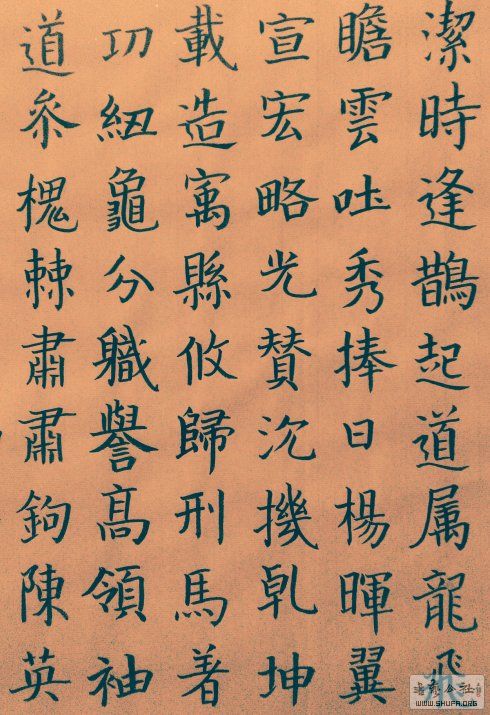 潔時逢鵲起道属龍飛
瞻雲吐秀捧日楊暉翼
宣宏略光賛沉機乹坤
載造寓縣攸歸刑馬着
㓛紐龜分職譽高領袖
道叅槐棘肅肅鉤陳英
WWW.SHUFA.ORG